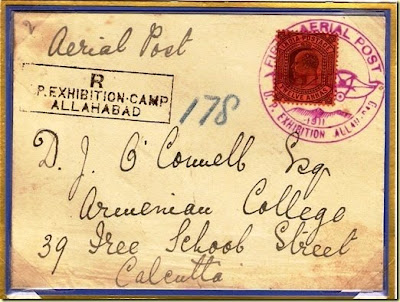 2
Aerial Post
FIRST AERIAL POST
INDIA POSTAGE
TWELVE ANNAS
1911
U.P. EXHIBITION ALLAHABAD
R
P. EXHIBITION·CAMP
ALLAHABAD
178
D. J. O'Connell Esq
Armenian College
39 Free School Street
Calcutta